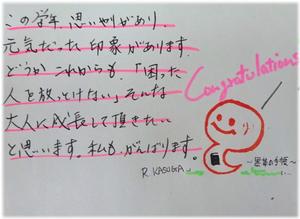 この学年、思いやりがあり、
元気だった印象があります。
どうかこれからも、「困った
人を放っとけない」そんな
大人に成長して頂きたい
と思います。私も、がんばります。
R. KASUGA
Congratulations